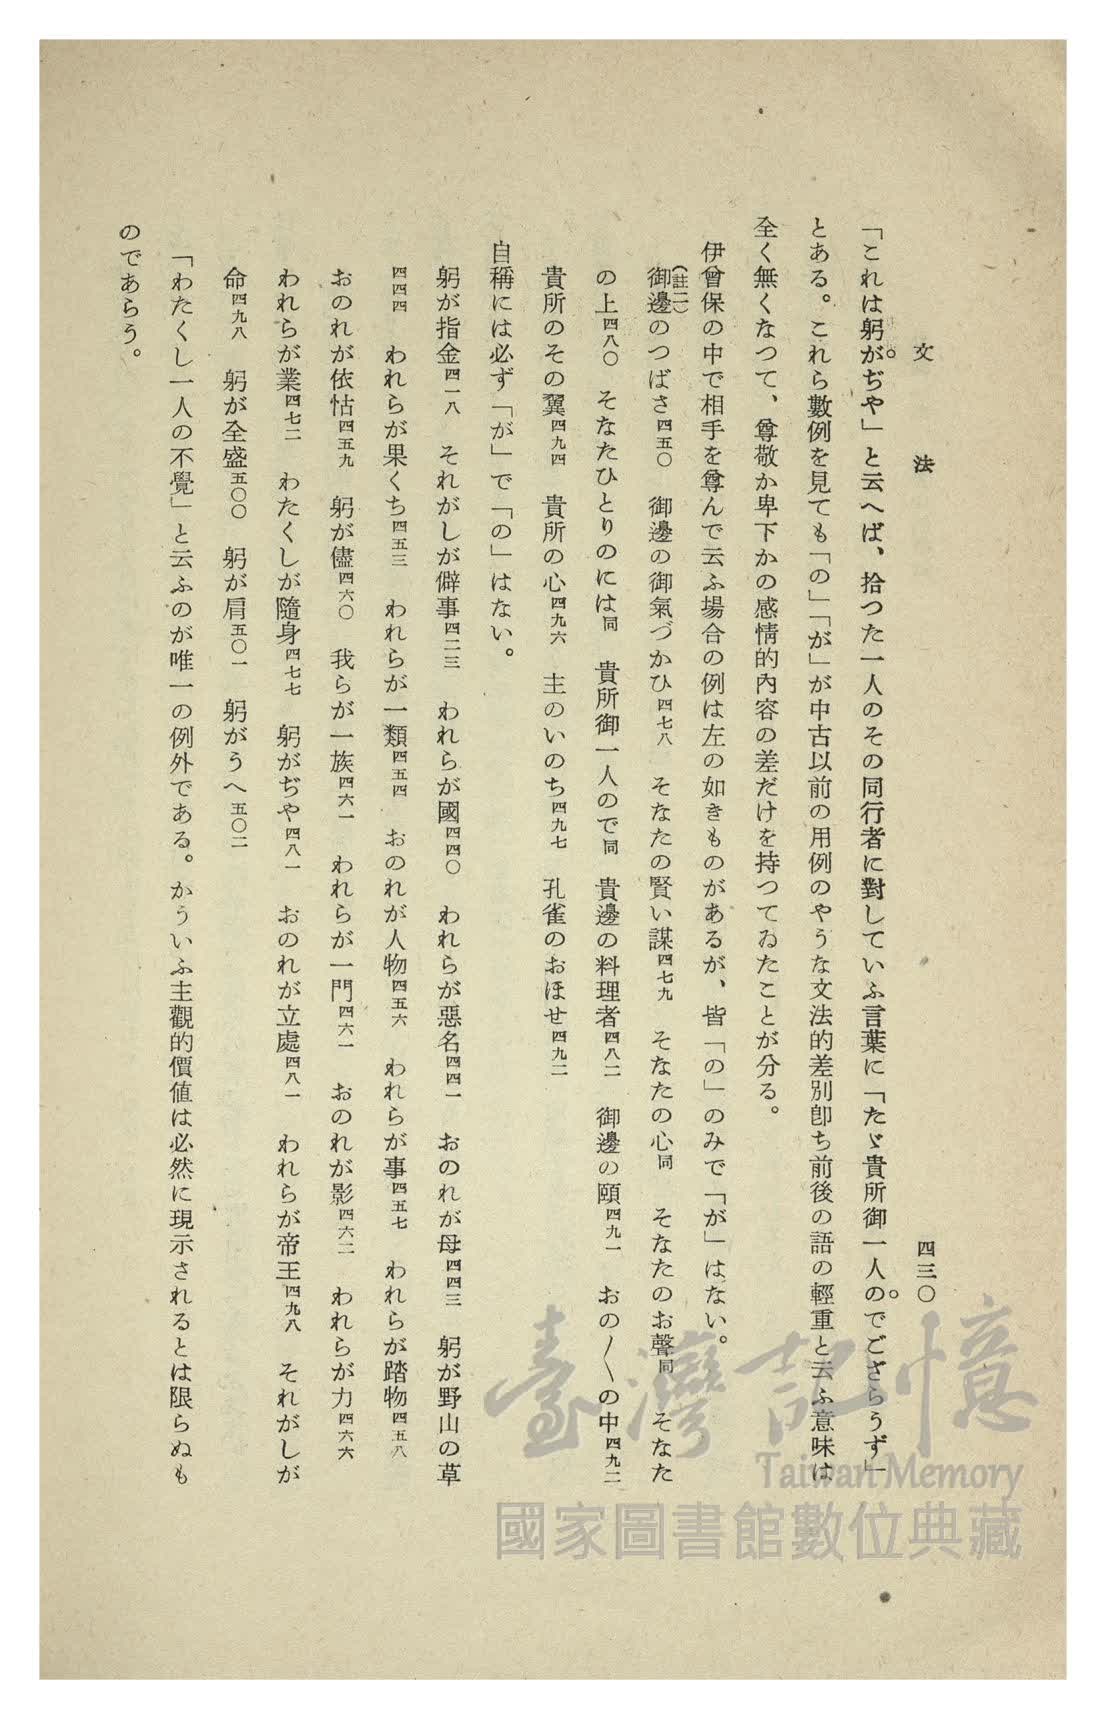 文法
四三〇
「これは躬がぢや」と云へば、拾つた一人のその同行者に對していふ言葉に「たゞ貴所御一人のでござらうず」
とある。これら數例を見ても「の」「が」が中古以前の用例のやうな文法的差別卽ち前後の語の輕重と云ふ意味は
全く無くなつて、尊敬か卑下かの感情的內容の差だけを持つてゐたことが分る。
伊曾保の中で相手を尊んで云ふ場合の例は左の如きものがあるが、皆「の」のみで「が」はない。
(註二)
御邊のつばさ四五〇　御邊の御氣づかひ四七八　そなたの賢い謀四七九　そなたの心同　そなたのお聲同　そなた
の上四八〇　そなたひとりのには同　貴所御一人ので同　貴邊の料理者四八二　御邊の頤四九一　おの〳〵の中四九二
貴所のその翼四九四　貴所の心四九六　主のいのち四九七　孔雀のおほせ四九二
自稱には必ず「が」で「の」はない。
躬が指金四一八　それがしが僻事四二三　われらが國四四〇　われらが惡名四四一　おのれが母四四三　躬が野山の草
四四四　われらが果くち四五三　われらが一類四五四　おのれが人物四五六　われらが事四五七　われらが踏物四五八
おのれが依怙四五九　躬が儘四六〇　我らが一族四六一　われらが一門四六一　おのれが影四六二　われらが力四六六
われらが業四七二　わたくしが隨身四七七　躬がぢや四八一　おのれが立處四八一　われらが帝王四九八　それがしが
命四九八　躬が全盛五〇〇　躬が肩五〇一　躬がうへ五〇二
「わたくし一人の不覺」と云ふのが唯一の例外である。かういふ主觀的價値は必然に現示されるとは限らぬも
のであらう。
臺灣記憶
Taiwan Memory
國家圖書館數位典藏